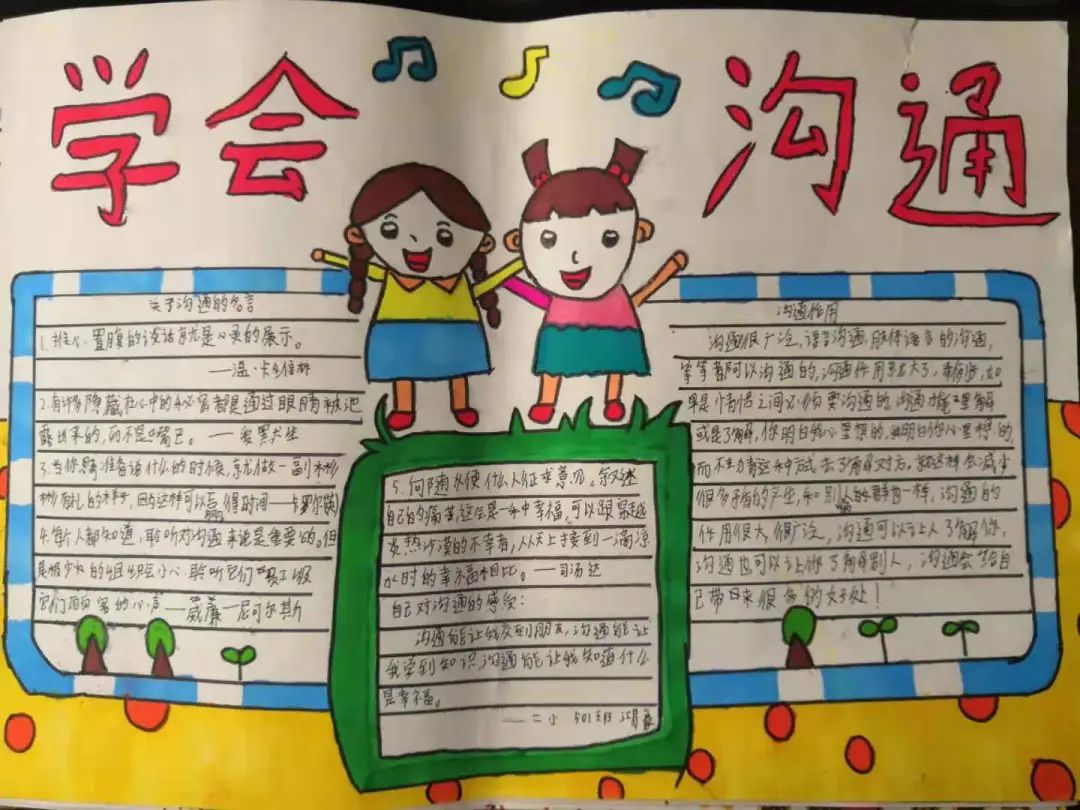 学会沟通
关于沟通的名言
1.推心置腹的谈话就是心灵的展示。
——温·卡维林
2.有许多隐藏在心中的秘密都是通过眼睛被泄
露出来的,而不是嘴巴。——爱黑犬生
3.当你思准备说什么的时候,就做一副彬
彬有礼的样子,因为这样可以赢得时间——卡罗尔
4.每个人都知道,聆听对沟通来说是重要的。但
是极少的组织会小心聆听它们
它们的心声——威廉—尼可尔斯
5.何随从使什么人征求意见,叙述
自己的痛苦,这会是一种幸福,可以跟穿越
炎热沙漠的不幸者,从天上接到一滴凉
水时的幸福相比。——司汤达
自己对沟通的感受:
沟通能让我交到朋友,沟通能让
我学到知识,沟通能让我知道什么
是幸福。
——二小 501班
沟通作用
沟通很广泛,语言沟通,肢体语言的沟通,
等等都可以沟通的,沟通作用太大了,举例,如
果是情侣之间必须要沟通的,沟通才能理解
或是了解,你明白我心里想的,我明白你心里想的,
而不去尝试去了解对方,那这样会减少
很多矛盾的产生,和别人的一样,沟通的
作用很大,很广泛,沟通可以让人了解你,
沟通也可以让你了解别人,沟通会给自
己带来很多的好处!